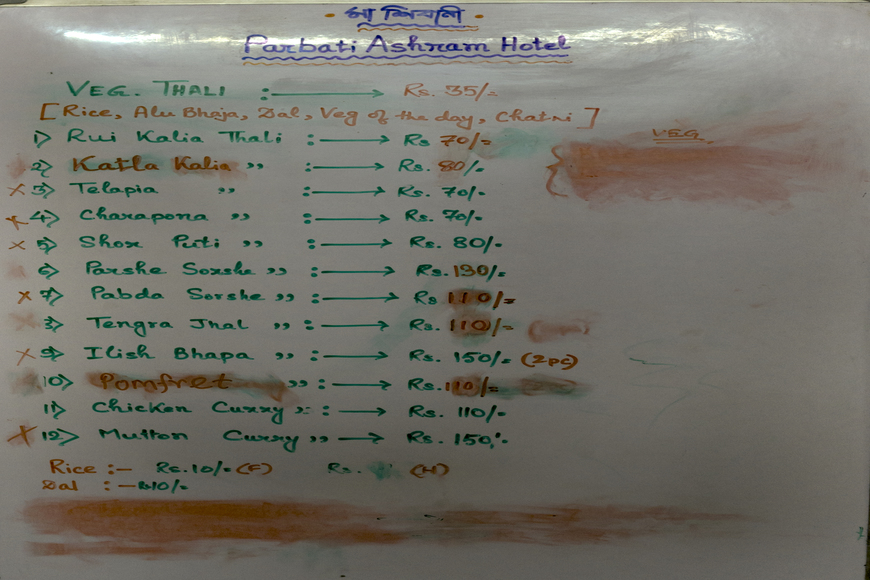 মা শিবানি
Parbati Ashram Hotel
VEG. THALI :→ Rs. 35/=
[Rice, Alu Bhaja, Dal, Veg of the day, Chatni]
VEG
1) Rui Kalia Thali :→ Rs 70/=
2) Katla Kalia ,, :→ Rs. 80/=
x 3) Telapia ,, :→ Rs. 70/-
x 4) Charapona ,, :→ Rs. 70/-
x 5) Shor Puti ,, :→ Rs. 80/-
6) Parshe Sorshe ,, :→ Rs. 130/=
x 7) Pabda Sorshe ,, :→ Rs 110/=
8) Tengra Jhal ,, :→ Rs. 110/=
x 9) Ilish Bhapa ,, :→ Rs. 150/= (2pc)
10) Pomfret ,, :→ Rs. 110/=
11) Chicken Curry ,, :→ Rs. 110/-
x 12) Mutton Curry ,, → Rs. 150/-
Rice :- Rs. 10/= (F) Rs. (H)
Dal :- 10/-